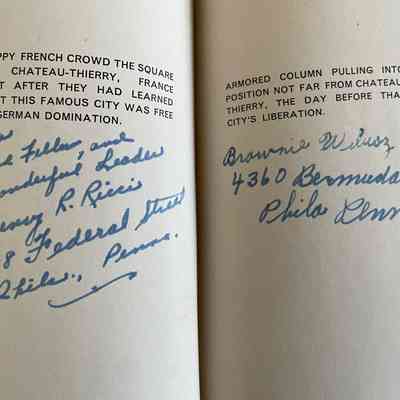 PPY FRENCH CROWD THE SQUARE
CHATEAU-THIERRY, FRANCE
T AFTER THEY HAD LEARNED
T THIS FAMOUS CITY WAS FREE
GERMAN DOMINATION.
Fella, and
onderful Leader
R. Ricci
8 Federal Street
Phila., Penna.
ARMORED COLUMN PULLING INTO
POSITION NOT FAR FROM CHATEAU
THIERRY, THE DAY BEFORE THA
CITY'S LIBERATION.
Brownie
4360 Bermuda
Phila Penn